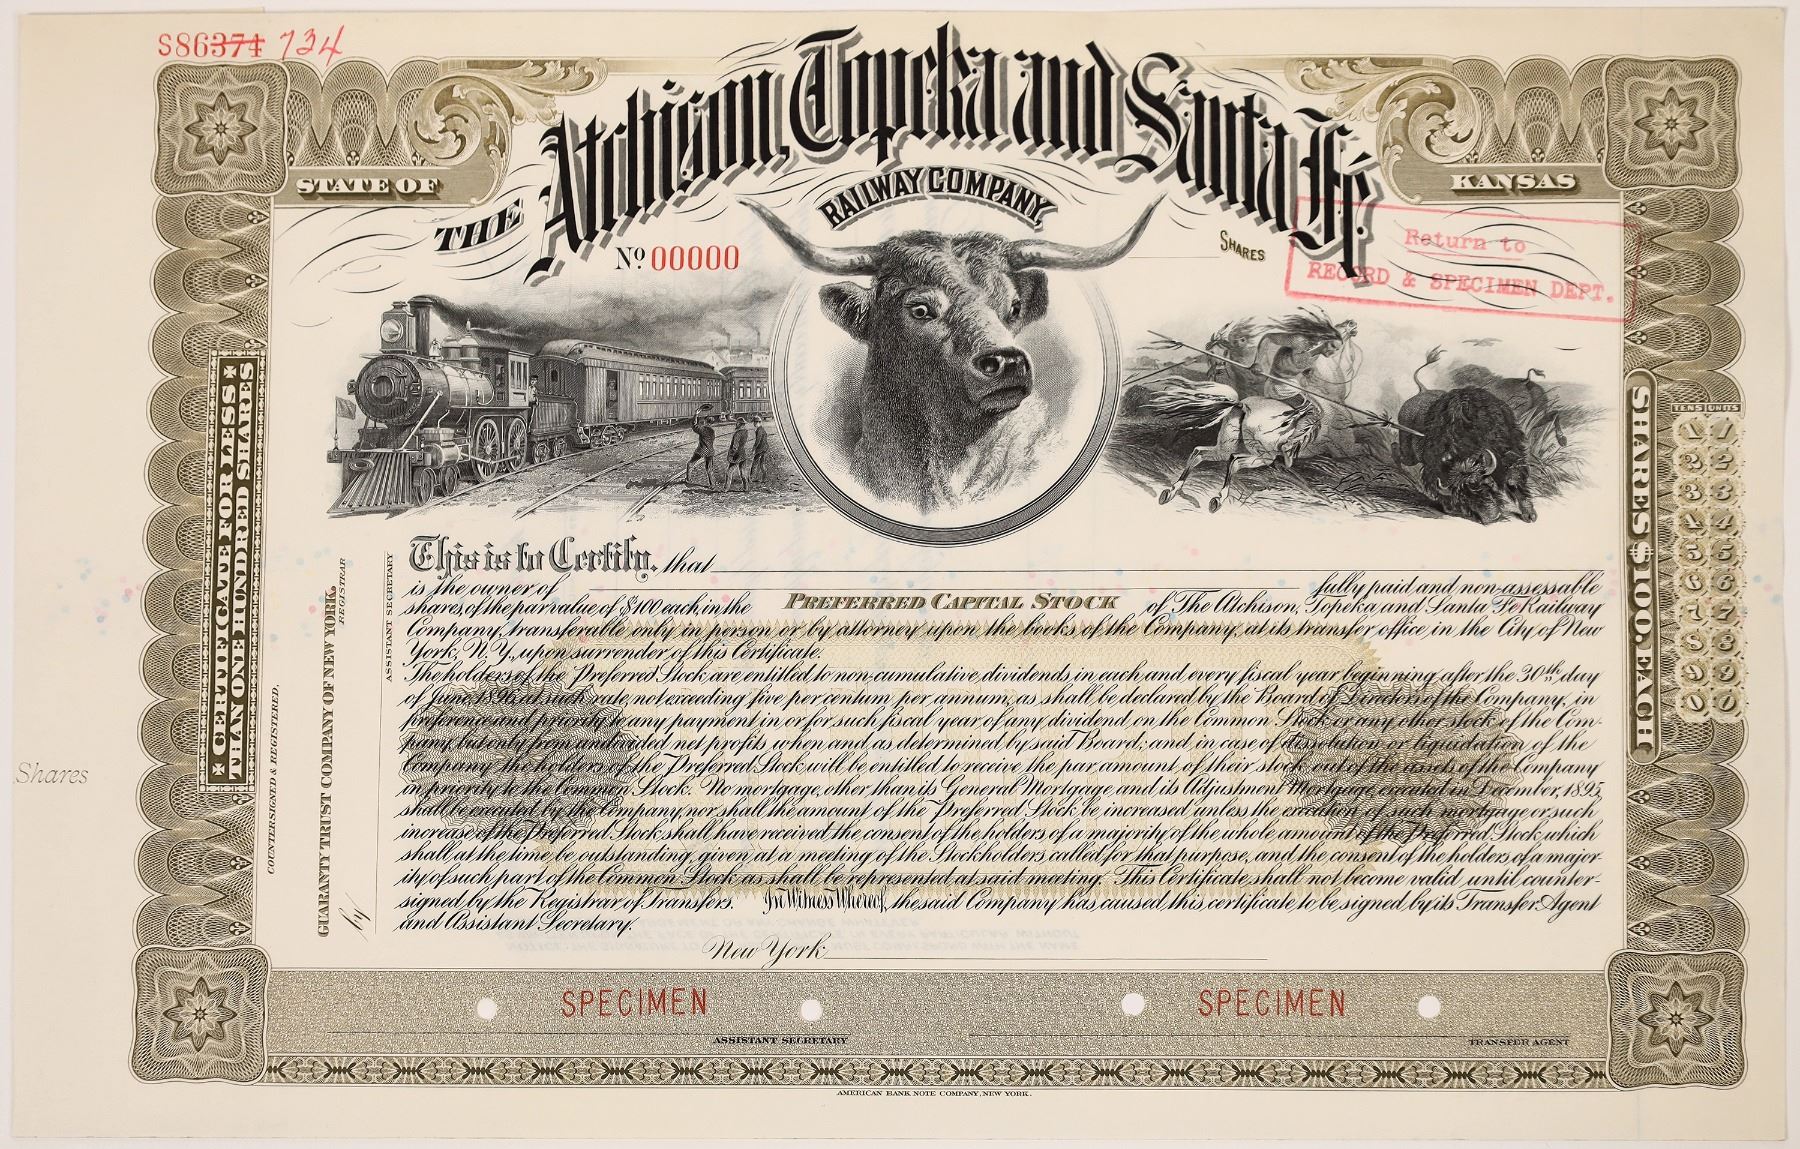 S86374 734
STATE OF
KANSAS
THE Atchison, Topeka and Santa Fé
RAILWAY COMPANY.
Nº 00000
SHARES
Return to
RECORD & SPECIMEN DEPT.
CERTIFICATE FOR LESS
THAN ONE HUNDRED SHARES
COUNTERSIGNED & REGISTERED.
GUARANTY TRUST COMPANY OF NEW YORK.
REGISTRAR
by
ASSISTANT SECRETARY
SHARES $100. EACH
TENS UNITS
1 1
2 2
3 3
4 4
5 5
6 6
7 7
8 8
9 9
0 0
This is to Certify, that
is the owner of fully paid and non-assessable
shares of the par value of $100 each, in the PREFERRED CAPITAL STOCK of The Atchison, Topeka and Santa Fe Railway
Company, transferable only in person or by attorney upon the books of the Company, at its transfer office, in the City of New
York, N.Y., upon surrender of this Certificate.
The holders of the Preferred Stock are entitled to non-cumulative dividends in each and every fiscal year beginning after the 30th day
of June, 1896, at such rate, not exceeding five per centum per annum, as shall be declared by the Board of Directors of the Company, in
preference and priority to any payment in or for such fiscal year of any dividend on the Common Stock or any other stock of the Com-
pany, but only from undivided net profits when and as determined by said Board; and in case of dissolution or liquidation of the
Company the holders of the Preferred Stock will be entitled to receive the par amount of their stock out of the assets of the Company
in priority to the Common Stock. No mortgage, other than its General Mortgage, and its Adjustment Mortgage, executed in December, 1895,
shall be executed by the Company, nor shall the amount of the Preferred Stock be increased unless the execution of such mortgage or such
increase of the Preferred Stock shall have received the consent of the holders of a majority of the whole amount of the Preferred Stock which
shall at the time be outstanding, given at a meeting of the Stockholders called for that purpose, and the consent of the holders of a major-
ity of such part of the Common Stock as shall be represented at said meeting. This Certificate shall not become valid until counter-
signed by the Registrar of Transfers. In Witness Whereof, the said Company has caused this certificate to be signed by its Transfer Agent
and Assistant Secretary.
New York
Shares
SPECIMEN SPECIMEN
ASSISTANT SECRETARY TRANSFER AGENT
AMERICAN BANK NOTE COMPANY, NEW YORK.